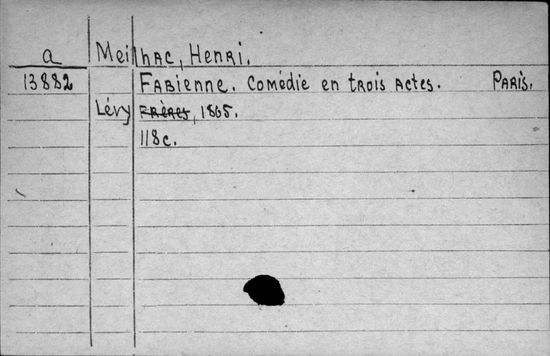 a Meilhac, Henri.
13882 Fabienne. Comédie en trois actes. Paris.
Lévy frères, 1865.
118c.